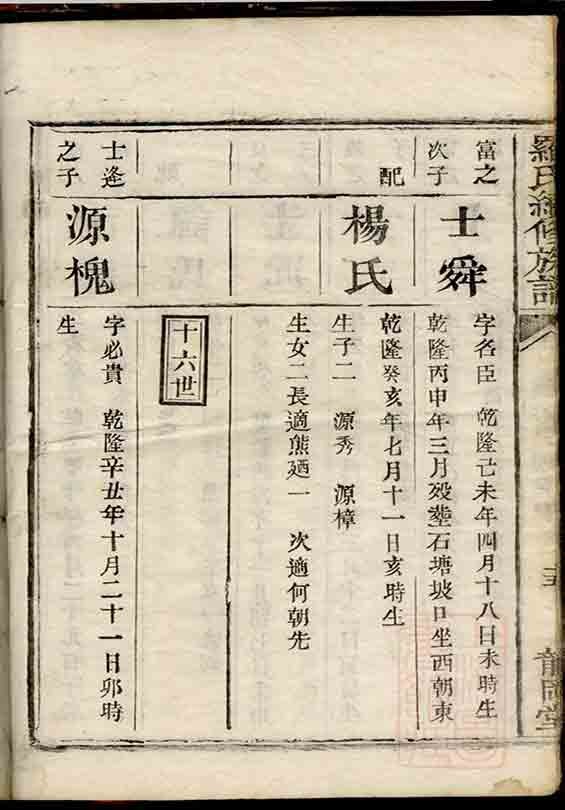 羅氏續修族譜
富之
次子
士舜
字名臣 乾隆己未年四月十八日未時生
乾隆丙申年三月歿塟石塘坡口坐西朝東
配
楊氏
乾隆癸亥年七月十一日亥時生
生子二 源秀 源樟
生女二長適熊廼一 次適何朝先
十六世
士逢
之子
源槐
字必貴 乾隆辛丑年十月二十一日卯時
生